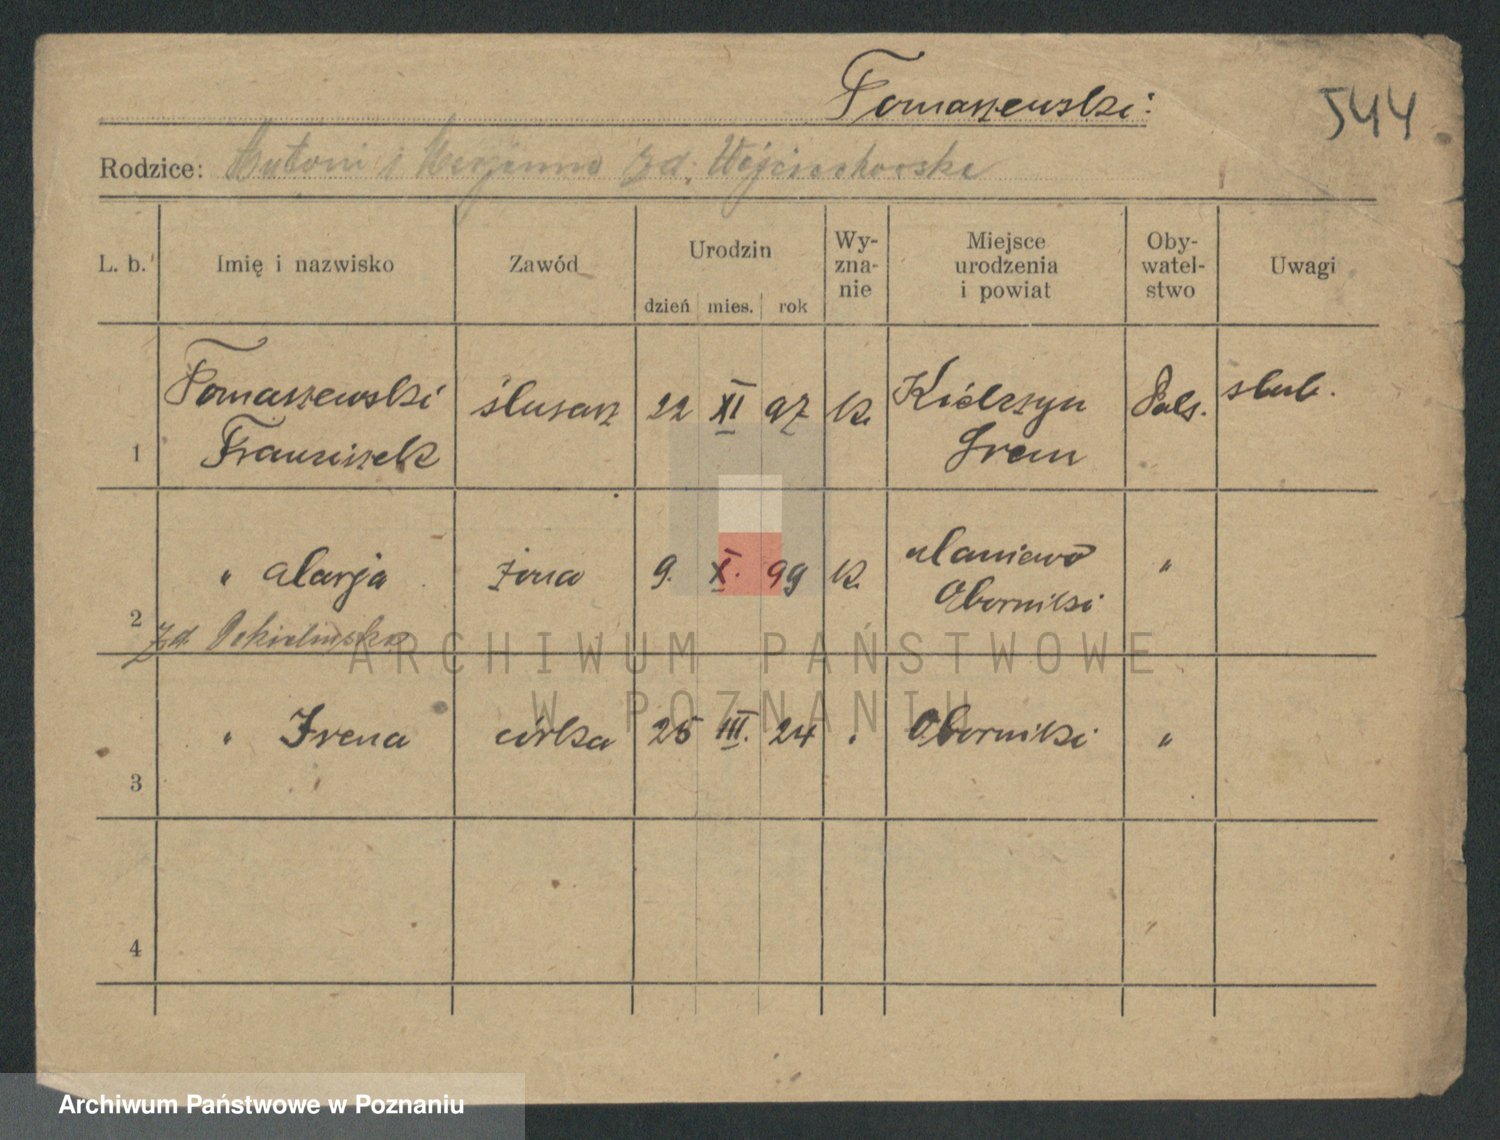 Tomaszewski:
544
Rodzice: Antoni i Marjanna zd. Wojciechowska
L. b. Imię i nazwisko Zawód Urodzin dzień mies. rok Wy-zna-nie Miejsce urodzenia i powiat Oby-watel-stwo Uwagi
1 Tomaszewski Franciszek ślusarz 22 XI 97 k. Kiełczyn Śrem Pols. ślub.
2 " Marja żona 9. X. 99 k. Oborniki "
zd
3 " Irena córka 25 III. 24 " Oborniki "
4
ARCHIWUM PAŃSTWOWE
W POZNANIU
Archiwum Państwowe w Poznaniu